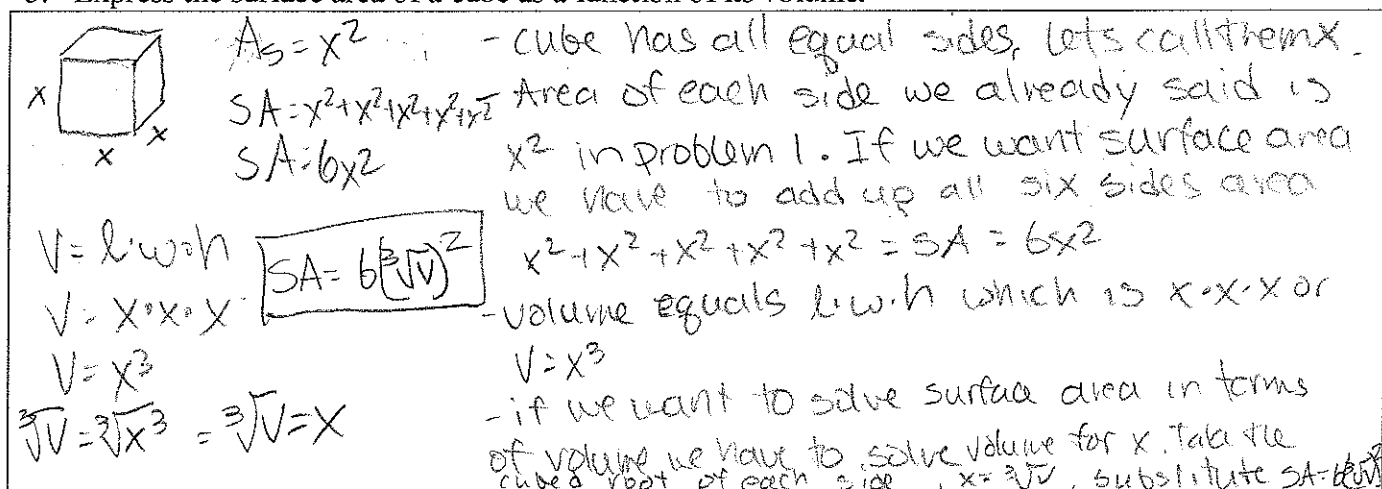 Express the surface area of a cube as a function of its volume.
A_S = x²
SA = x²+x²+x²+x²+x²
SA = 6x²
x
x
x
V = l·w·h
V = x·x·x
V = x³
∛V = ∛x³ = ∛V = x
SA = 6(∛V)²
- cube has all equal sides, lets call them x.
Area of each side we already said is
x² in problem 1. If we want surface area
we have to add up all six sides area
x² + x² + x² + x² + x² = SA = 6x²
- volume equals l·w·h which is x·x·x or
V = x³
- if we want to solve surface area in terms
of volume we have to solve volume for x. Take the
cubed root of each side, x = ∛V, substitute SA = 6(∛V)²